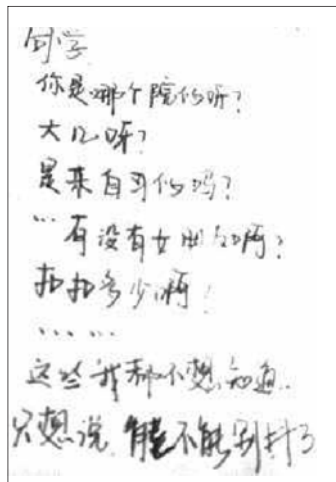 同学
你是哪个院的呀?
大几呀?
是来自习的吗?
…有没有女朋友啊?
扣扣多少啊!
……
这些我都不想知道.
只想说 能不能别抖了